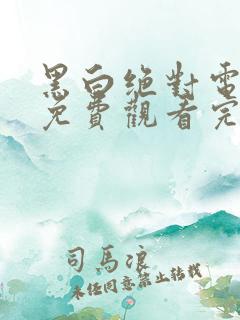 黑白絶對電
免費觀看完
司馬浪
未經同意禁止轉載